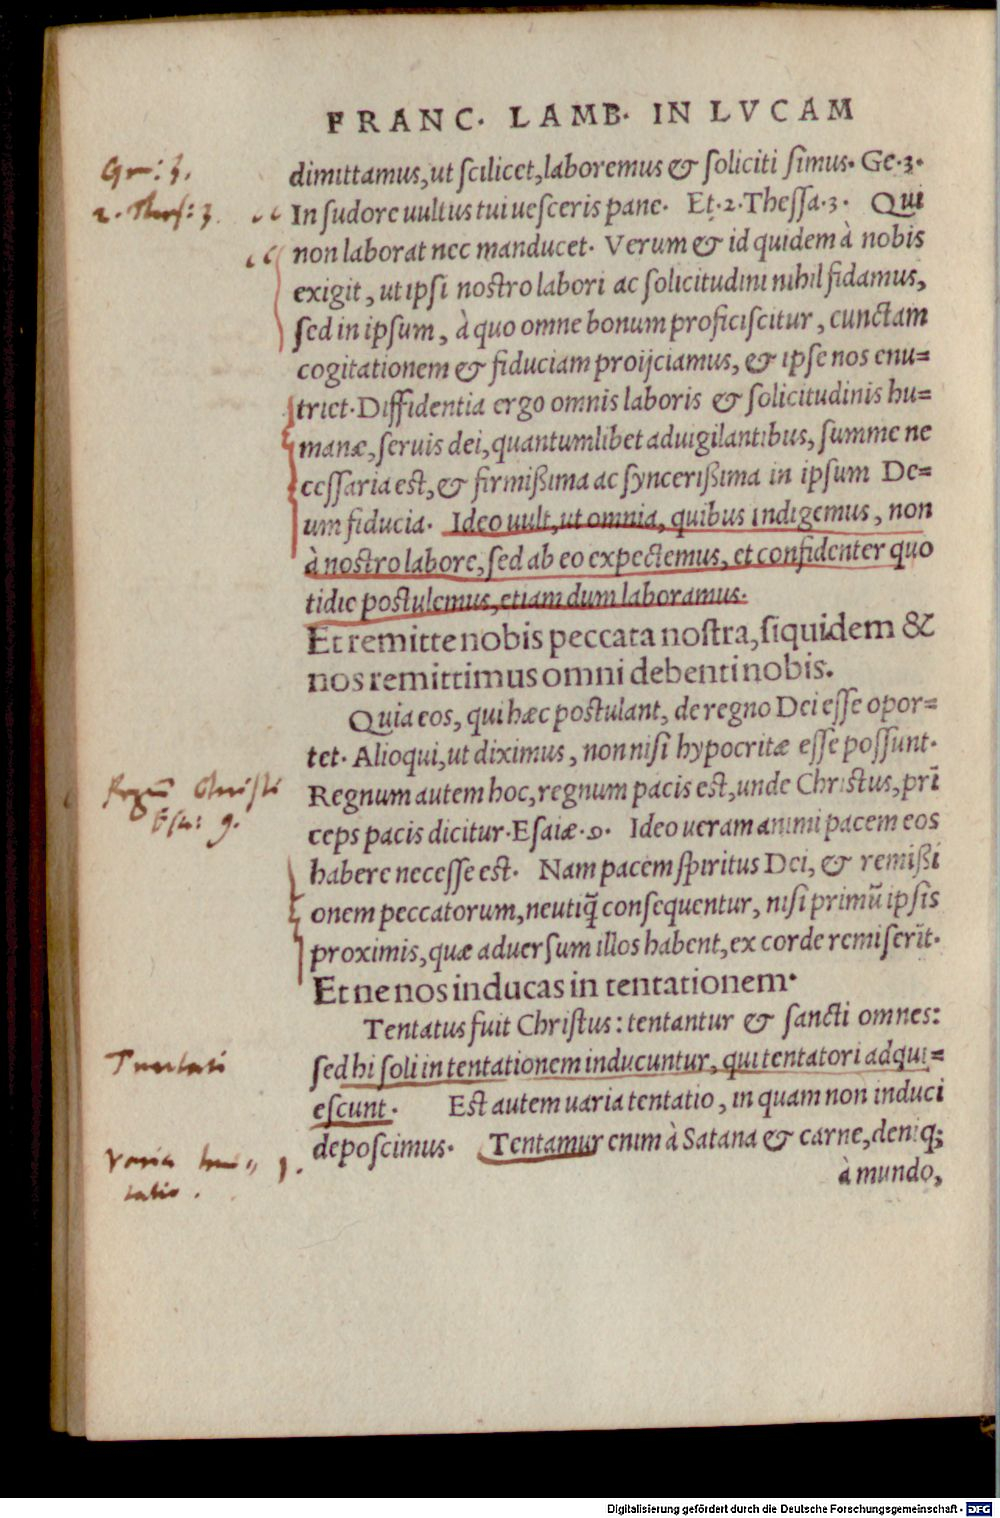 FRANC. LAMB. IN LVCAM
Gen: 3.
2. Thess: 3.
dimittamus, ut scilicet, laboremus & soliciti simus. Ge. 3.
In sudore uultus tui uesceris pane. Et. 2. Thessa. 3. Qui
non laborat nec manducet. Verum & id quidem à nobis
exigit, ut ipsi nostro labori ac solicitudini nihil fidamus,
sed in ipsum, à quo omne bonum proficiscitur, cunctam
cogitationem & fiduciam proijciamus, & ipse nos enu=
triet. Diffidentia ergo omnis laboris & solicitudinis hu=
manæ, seruis dei, quantumlibet aduigilantibus, summe ne
cessaria est, & firmißima ac syncerißima in ipsum De=
um fiducia. Ideo uult, ut omnia, quibus indigemus, non
à nostro labore, sed ab eo expectemus, et confidenter quo
tidie postulemus, etiam dum laboramus.
Et remitte nobis peccata nostra, siquidem &
nos remittimus omni debenti nobis.
Quia eos, qui hæc postulant, de regno Dei esse opor=
tet. Alioqui, ut diximus, non nisi hypocritæ esse possunt.
Regnum autem hoc, regnum pacis est, unde Christus, prī
ceps pacis dicitur. Esaiæ. 9. Ideo ueram animi pacem eos
habere necesse est. Nam pacem spiritus Dei, & remißi
onem peccatorum, neutiq̃ consequentur, nisi primū ipsis
proximis, quæ aduersum illos habent, ex corde remiserīt.
Regnū Christi
Esa: 9.
Et ne nos inducas in tentationem.
Tentatus fuit Christus: tentantur & sancti omnes:
sed hi soli in tentationem inducuntur, qui tentatori adqui=
escunt. Est autem uaria tentatio, in quam non induci
deposcimus. Tentamur enim à Satana & carne, deniq;
à mundo,
Tentati
Varia ten=
tatio.
1.
Digitalisierung gefördert durch die Deutsche Forschungsgemeinschaft - DFG